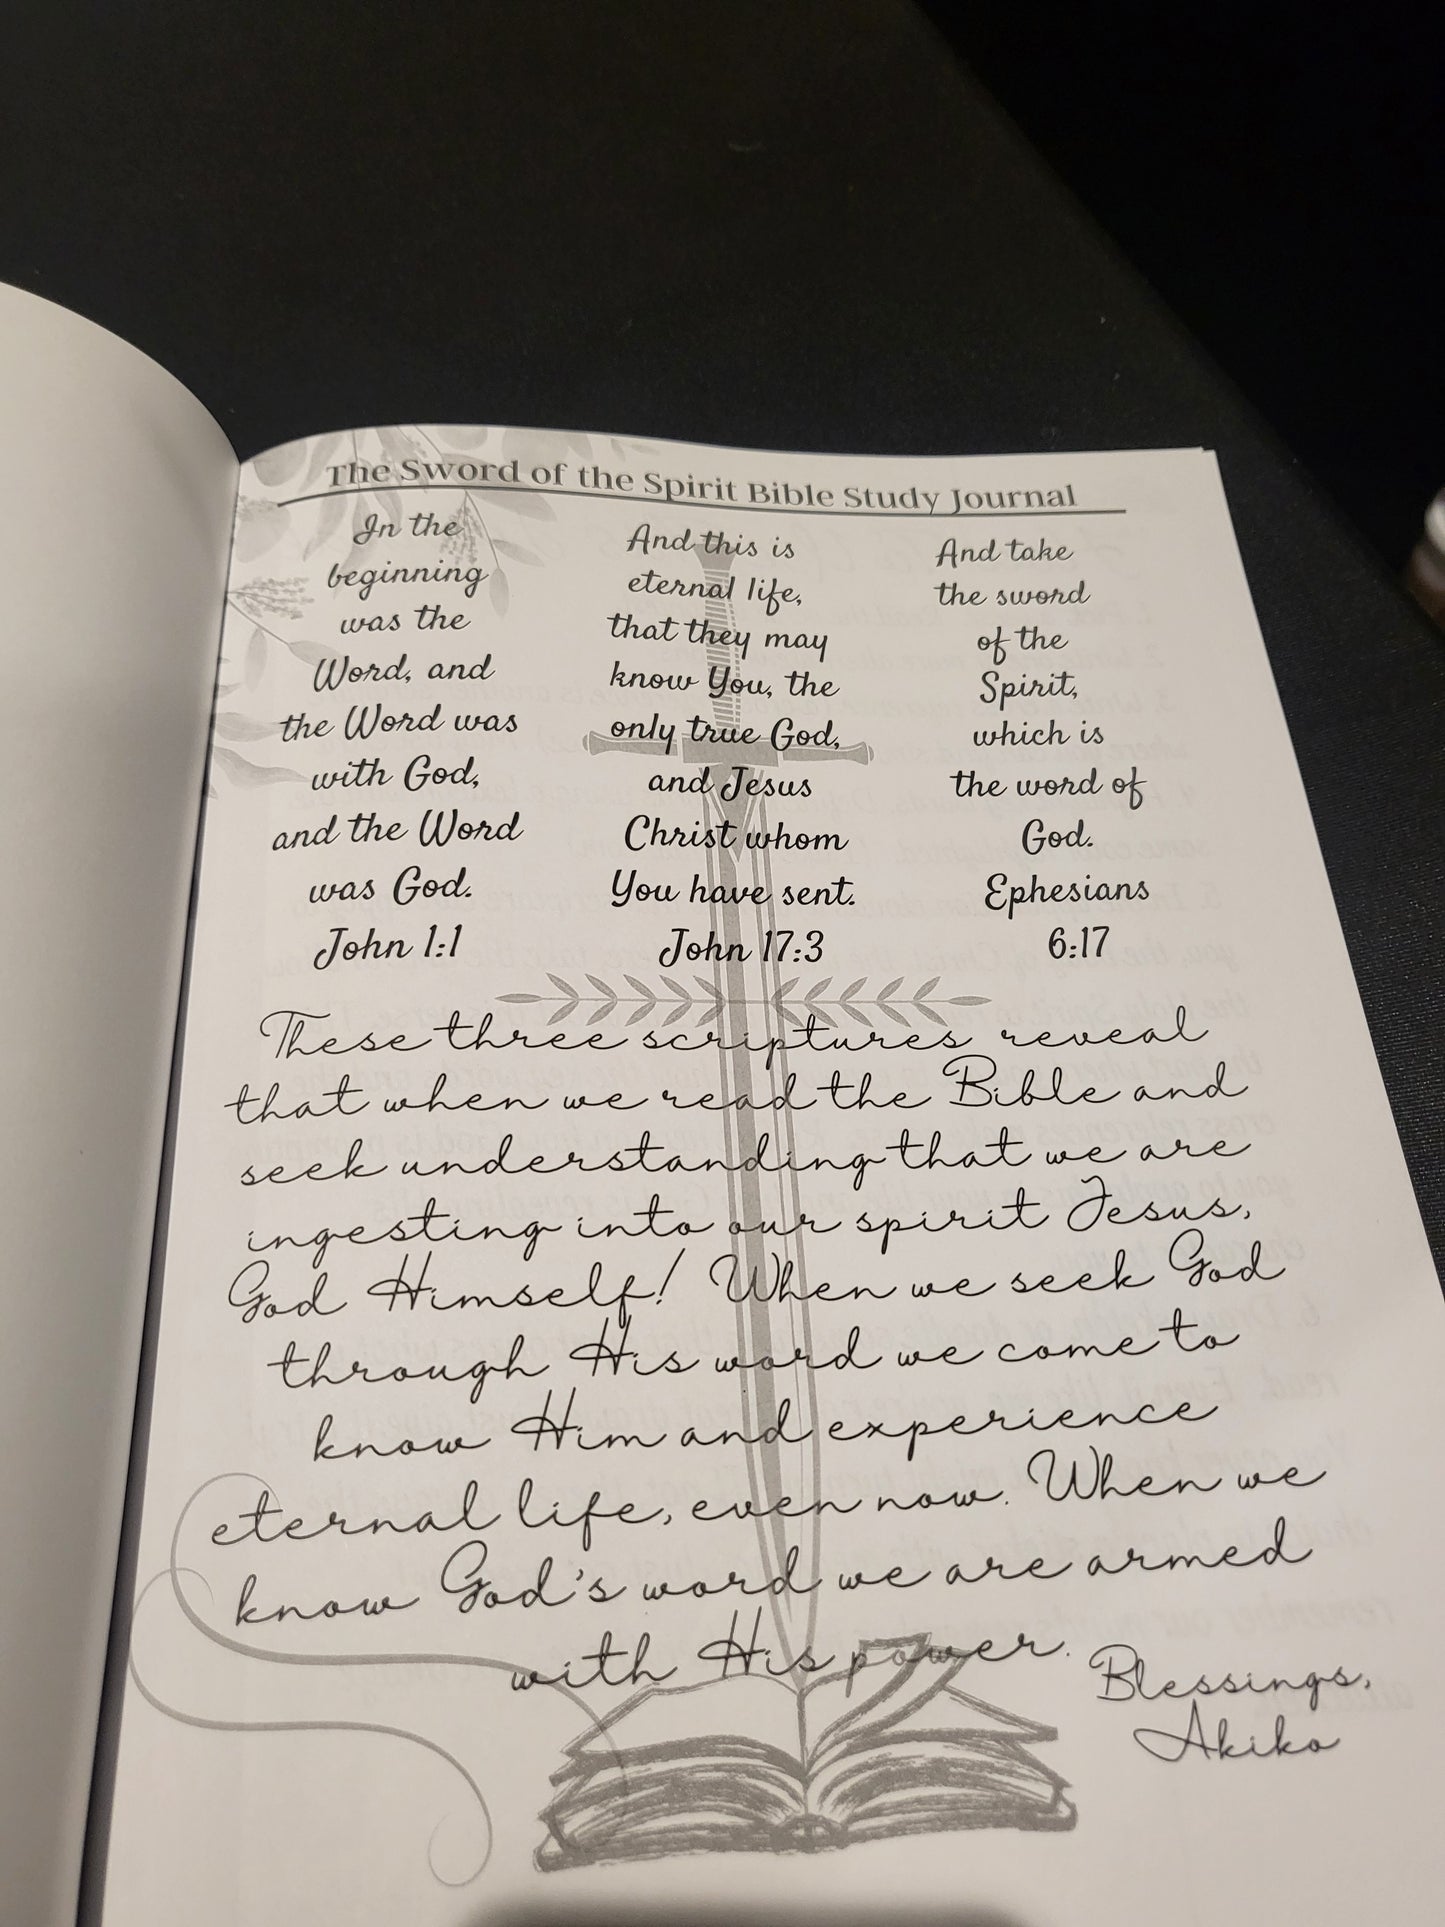 The Sword of the Spirit Bible Study Journal
In the
beginning
was the
Word, and
the Word was
with God,
and the Word
was God.
John 1:1
And this is
eternal life,
that they may
know You, the
only true God,
and Jesus
Christ whom
You have sent.
John 17:3
And take
the sword
of the
Spirit,
which is
the word of
God.
Ephesians
6:17
These three scriptures reveal
that when we read the Bible and
seek understanding that we are
ingesting into our spirit Jesus,
God Himself! When we seek God
through His word we come to
know Him and experience
eternal life, even now. When we
know God's word we are armed
with His power.
Blessings,
Akiko